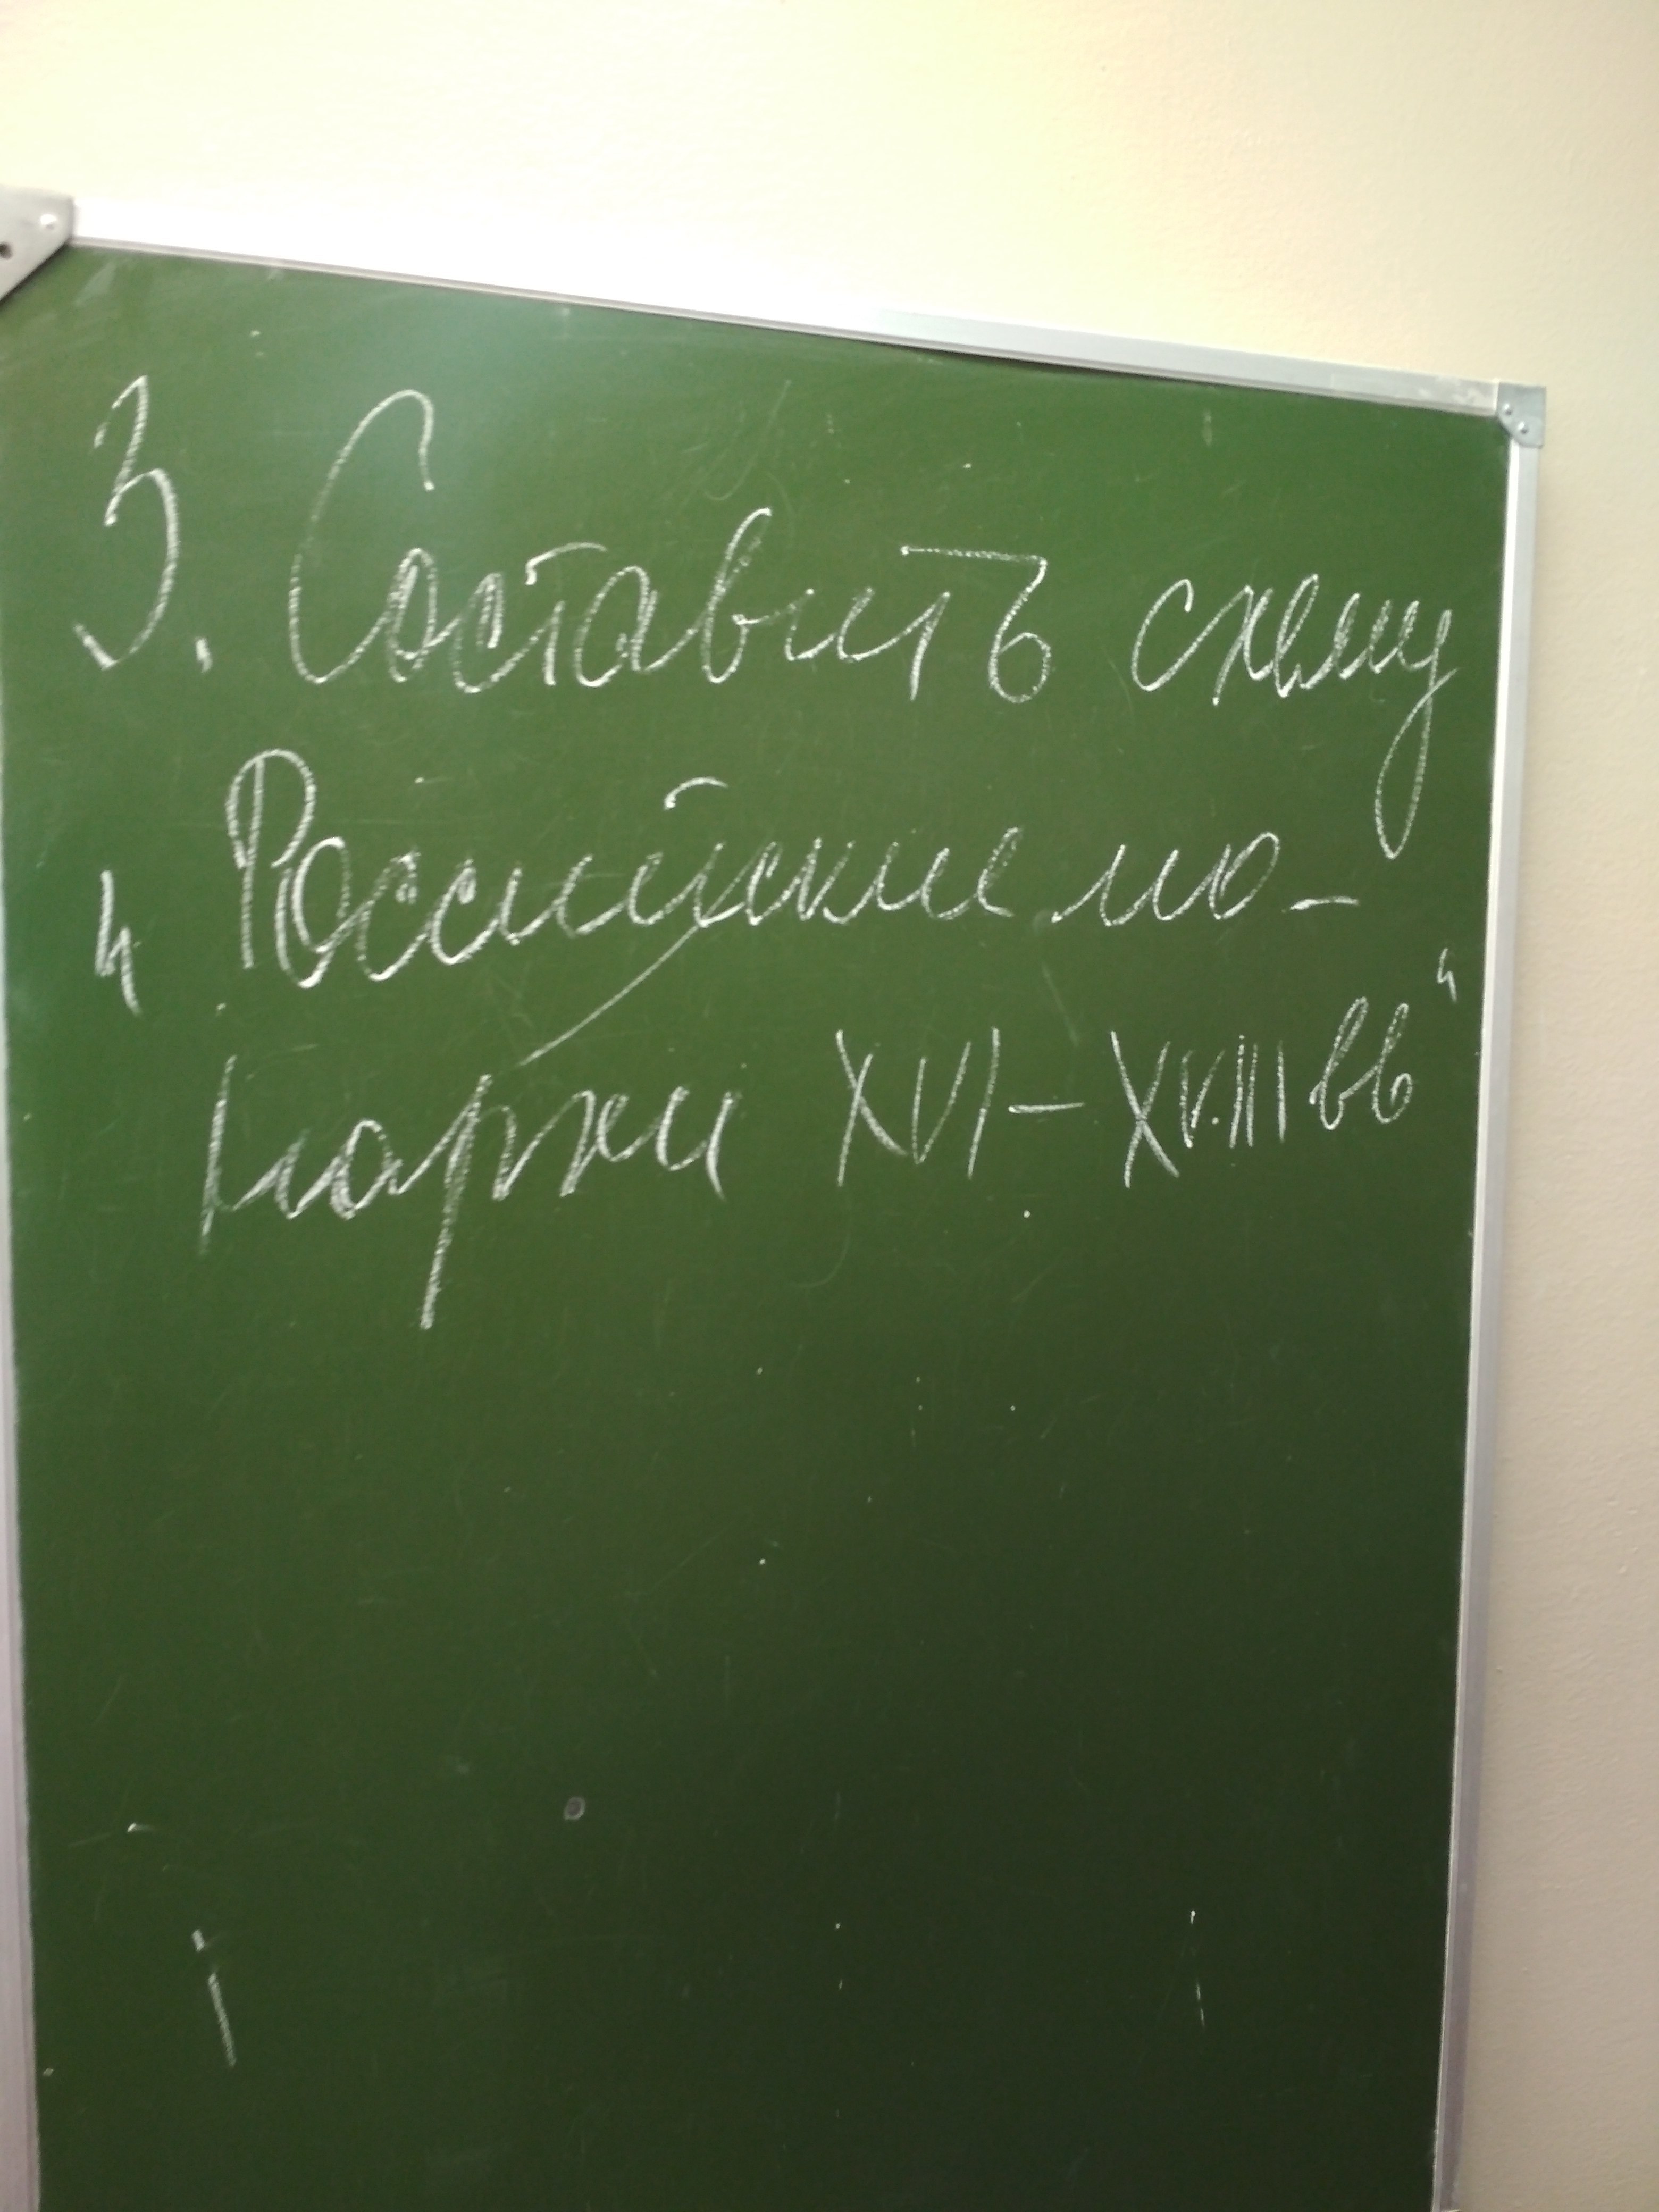 3. Составить схему
"Российские мо-
нархи XVI-XVIII вв"